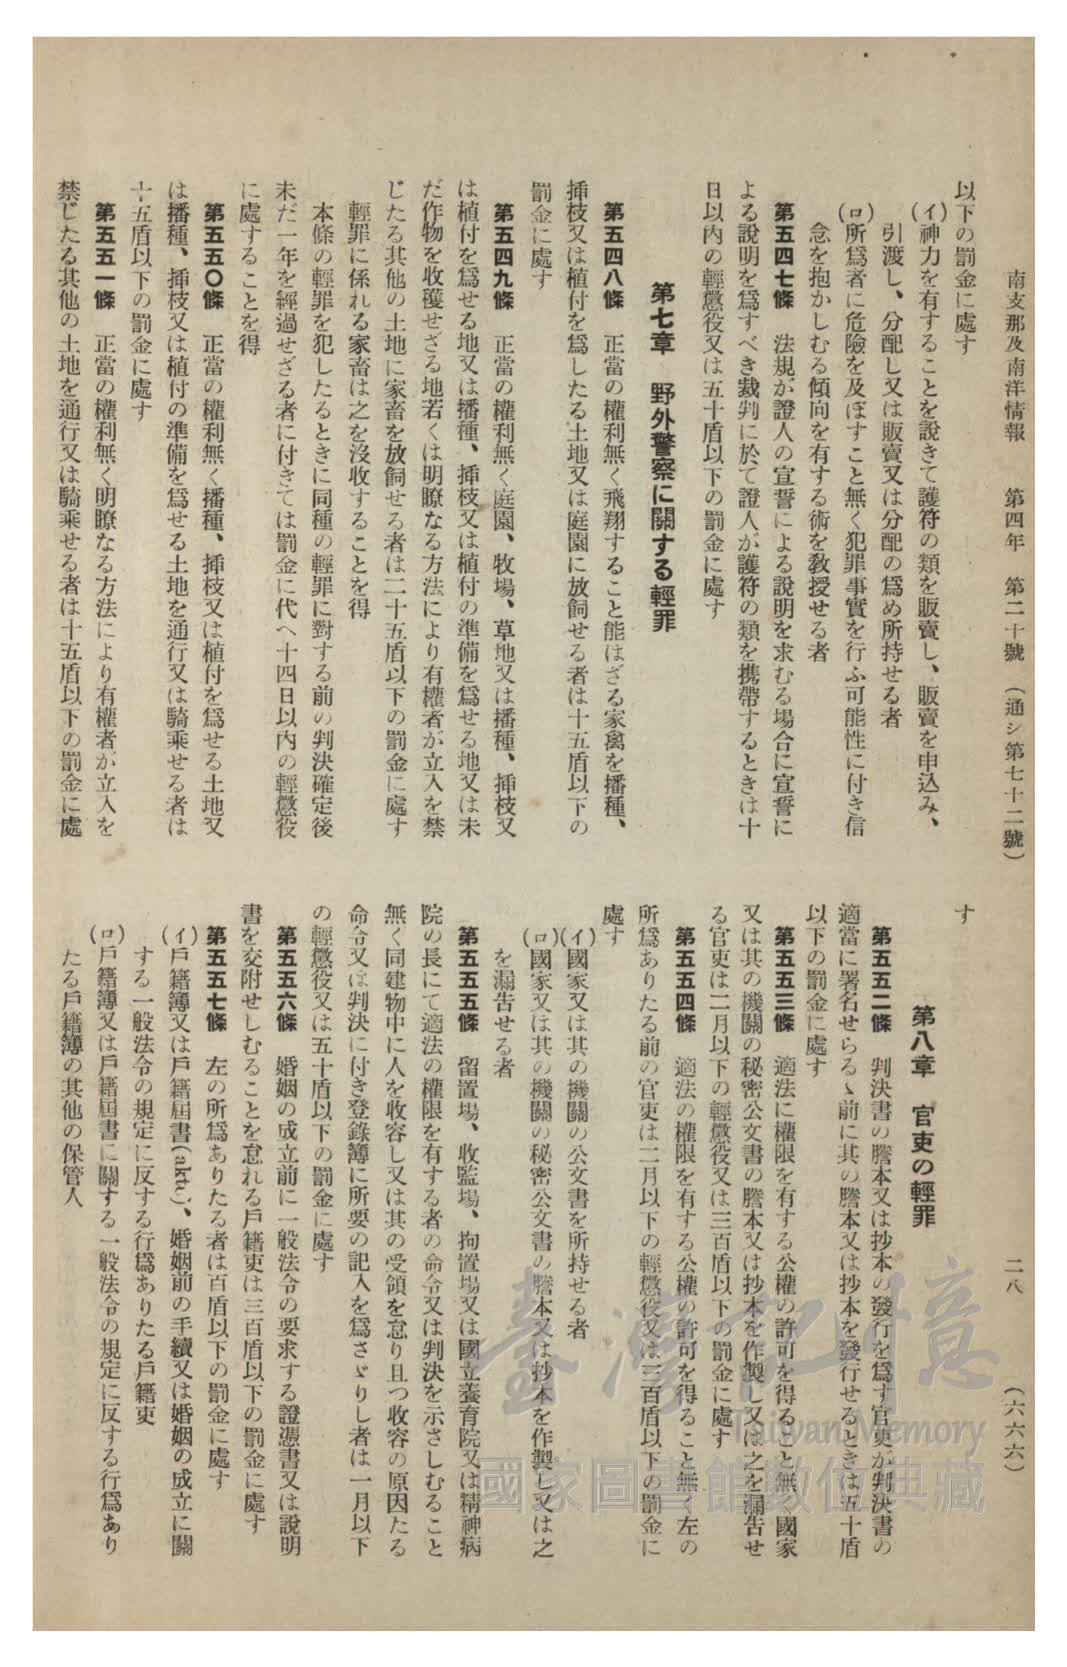 南支那及南洋情報　第四年　第二十號　（通シ第七十二號）　二八　（六六六）
以下の罰金に處す
(イ)神力を有することを説きて護符の類を販賣し、販賣を申込み、
引渡し、分配し又は販賣又は分配の爲め所持せる者
(ロ)所爲者に危險を及ぼすこと無く犯罪事實を行ふ可能性に付き信
念を抱かしむる傾向を有する術を敎授せる者
第五四七條　法規が證人の宣誓による説明を求むる場合に宣誓に
よる説明を爲すべき裁判に於て證人が護符の類を携帶するときは十
日以內の輕懲役又は五十盾以下の罰金に處す
第七章　野外警察に關する輕罪
第五四八條　正當の權利無く飛翔すること能はざる家禽を播種、
揷枝又は植付を爲したる土地又は庭園に放飼せる者は十五盾以下の
罰金に處す
第五四九條　正當の權利無く庭園、牧場、草地又は播種、揷枝又
は植付を爲せる地又は播種、揷枝又は植付の準備を爲せる地又は未
だ作物を收穫せざる地若くは明瞭なる方法により有權者が立入を禁
じたる其他の土地に家畜を放飼せる者は二十五盾以下の罰金に處す
輕罪に係れる家畜は之を沒收することを得
本條の輕罪を犯したるときに同種の輕罪に對する前の判決確定後
未だ一年を經過せざる者に付きては罰金に代へ十四日以內の輕懲役
に處することを得
第五五〇條　正當の權利無く播種、揷枝又は植付を爲せる土地又
は播種、揷枝又は植付の準備を爲せる土地を通行又は騎乘せる者は
十五盾以下の罰金に處す
第五五一條　正當の權利無く明瞭なる方法により有權者が立入を
禁じたる其他の土地を通行又は騎乘せる者は十五盾以下の罰金に處
す
第八章　官吏の輕罪
第五五二條　判決書の謄本又は抄本の發行を爲す官吏が判決書の
適當に署名せらるゝ前に其の謄本又は抄本を發行せるときは五十盾
以下の罰金に處す
第五五三條　適法に權限を有する公權の許可を得ること無く國家
又は其の機關の秘密公文書の謄本又は抄本を作製し又は之を漏告せ
る官吏は二月以下の輕懲役又は三百盾以下の罰金に處す
第五五四條　適法の權限を有する公權の許可を得ること無く左の
所爲ありたる前の官吏は二月以下の輕懲役又は三百盾以下の罰金に
處す
(イ)國家又は其の機關の公文書を所持せる者
(ロ)國家又は其の機關の秘密公文書の謄本又は抄本を作製し又は之
を漏告せる者
第五五五條　留置場、收監場、拘置場又は國立養育院又は精神病
院の長にて適法の權限を有する者の命令又は判決を示さしむること
無く同建物中に人を收容し又は其の受領を怠り且つ收容の原因たる
命令又は判決に付き登錄簿に所要の記入を爲さゞりし者は一月以下
の輕懲役又は五十盾以下の罰金に處す
第五五六條　婚姻の成立前に一般法令の要求する證憑書又は說明
書を交附せしむることを怠れる戶籍吏は三百盾以下の罰金に處す
第五五七條　左の所爲ありたる者は百盾以下の罰金に處す
(イ)戶籍簿又は戶籍屆書(akte)、婚姻前の手續又は婚姻の成立に關
する一般法令の規定に反する行爲ありたる戶籍吏
(ロ)戶籍簿又は戶籍屆書に關する一般法令の規定に反する行爲あり
たる戶籍簿の其他の保管人
臺灣記憶
Taiwan Memory
國家圖書館數位典藏